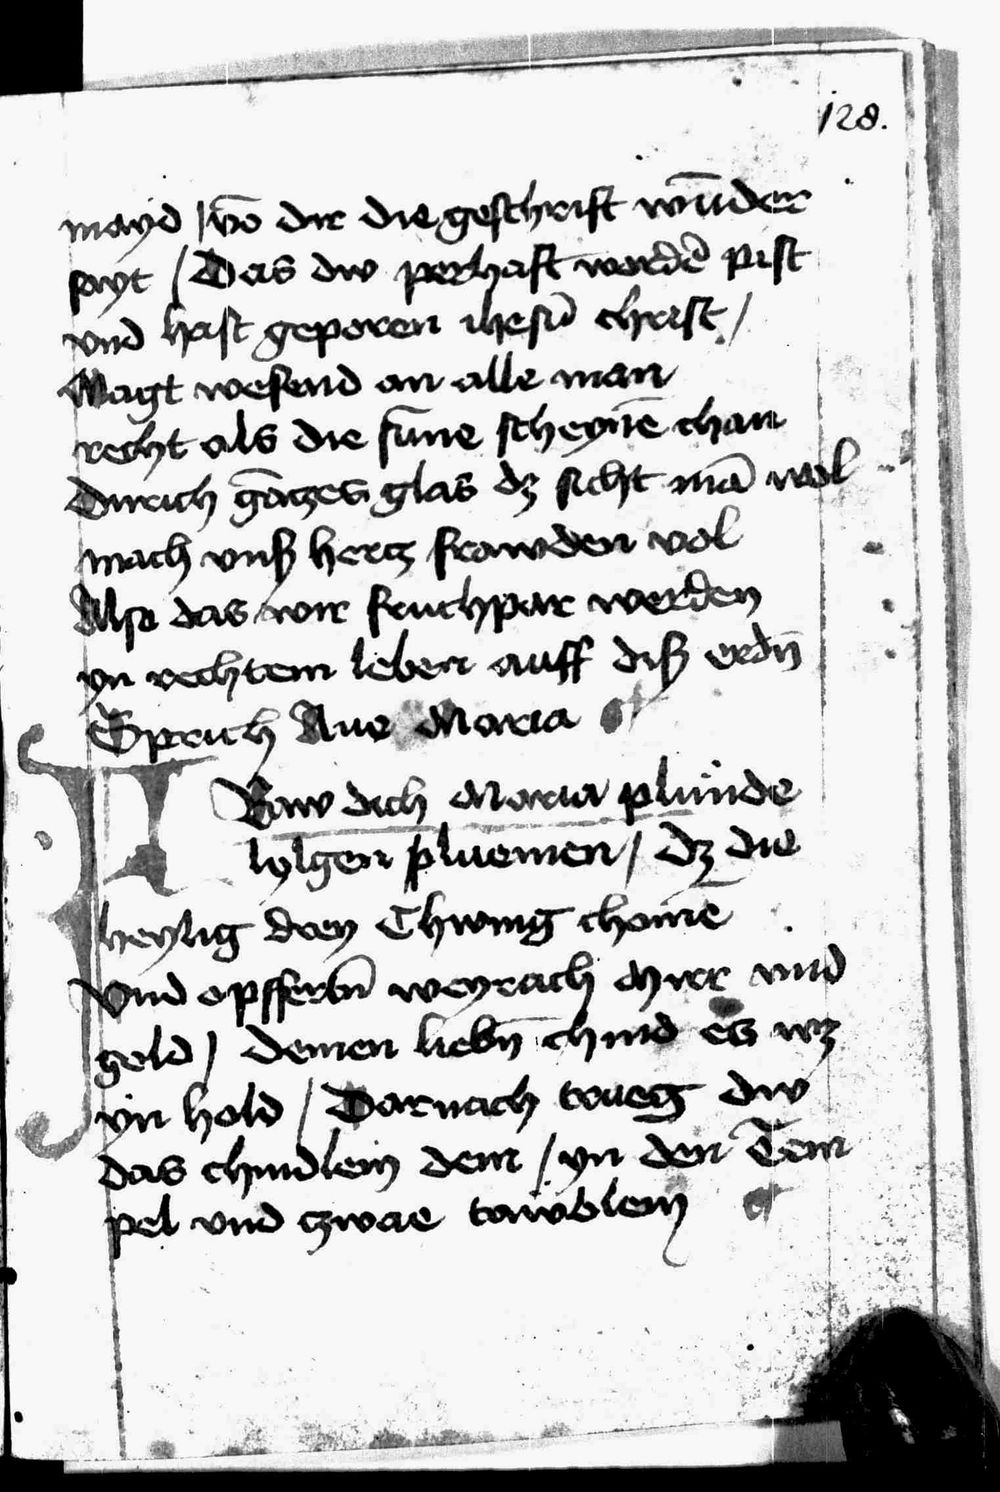 128.
mayd / vō dir die geschrift wūder
sayt / Das dw perhaft wordē pist
vnd hast geporen ihesū christ /
Magt wesend an alle man
recht als die sūne scheynē chan
Durich gāczes glas dz sicht mā wol
mach vnß hertz frawden vol
Also das wir fruchpar werden
yn rechtem leben auff diß erdn̄
Sprich Aue Maria
Fraw dich Maria plünde
lylgen pluemen / dz die
heylig drey Chünig chomē
Vnd opffertn̄ weyrach myrr vnd
gold / deinen liebn̄ chind es wz
yn hold / Darnach trueg dw
das chindlein dein / yn den Tem
pel vnd czwae täwblein